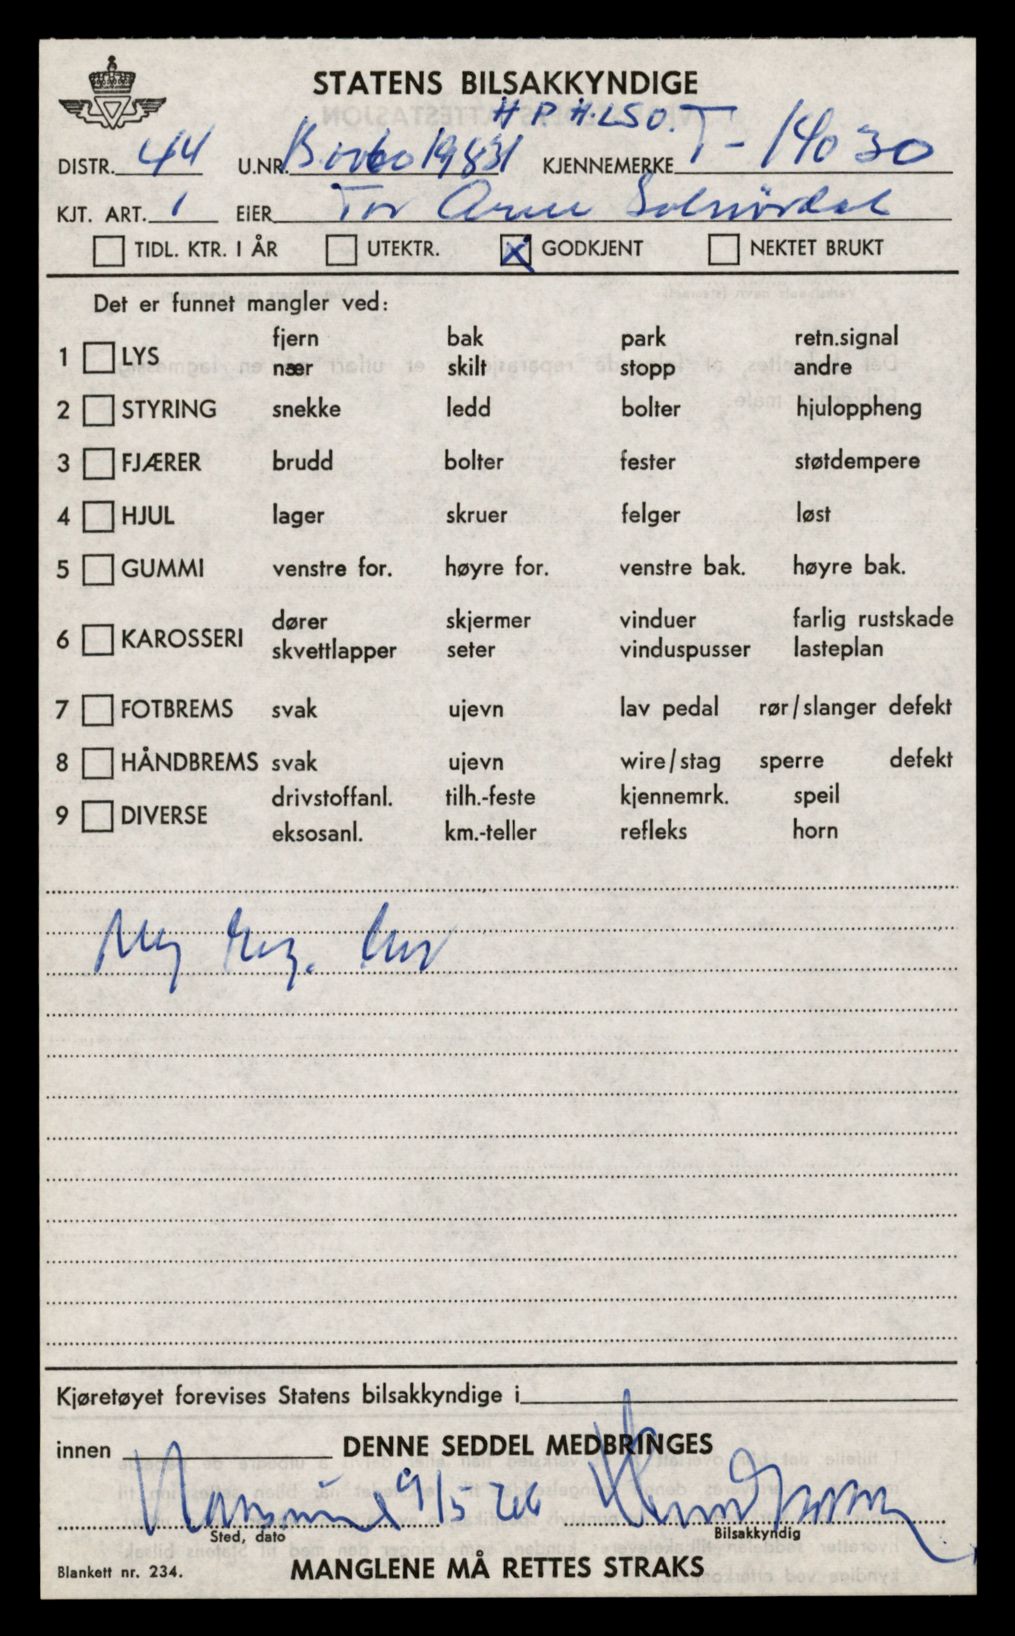 STATENS BILSAKKYNDIGE
DISTR. 44 U.NR. KJENNEMERKE T-14030
KJT. ART. 1 EIER Tor Arne Solnørdal
TIDL. KTR. I ÅR UTEKTR. X GODKJENT NEKTET BRUKT
Det er funnet mangler ved:
fjern bak park retn.signal
1 LYS
nær skilt stopp andre
2 STYRING snekke ledd bolter hjuloppheng
3 FJÆRER brudd bolter fester støtdempere
4 HJUL lager skruer felger løst
5 GUMMI venstre for. høyre for. venstre bak. høyre bak.
dører skjermer vinduer farlig rustskade
6 KAROSSERI
skvettlapper seter vinduspusser lasteplan
7 FOTBREMS svak ujevn lav pedal rør/slanger defekt
8 HÅNDBREMS svak ujevn wire/stag sperre defekt
drivstoffanl. tilh.-feste kjennemrk. speil
9 DIVERSE
eksosanl. km.-teller refleks horn
Ny reg.
Kjøretøyet forevises Statens bilsakkyndige i
innen DENNE SEDDEL MEDBRINGES
Sted, dato Bilsakkyndig
Blankett nr. 234. MANGLENE MÅ RETTES STRAKS